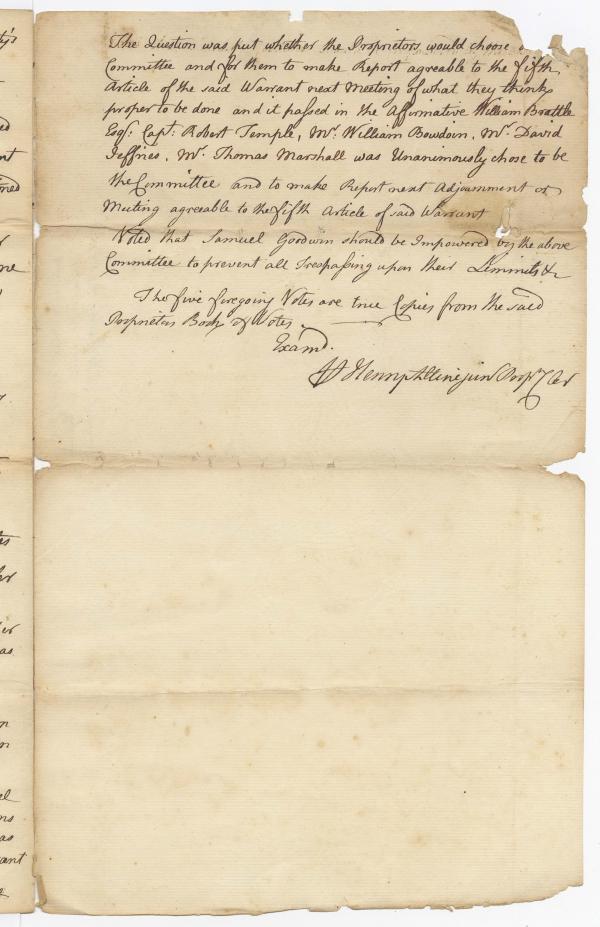 The Question was put whether the Proprietors would choose
Committee and for them to make Report agreable to the fifth
Article of the said Warrant next Meeting of what they think
proper to be done and it passed in the Affirmative William Brattle
Esqr: Capt: Robert Temple, Mr. William Bowdoin, Mr. David
Jeffries, Mr. Thomas Marshall was Unanimously chose to be
the Committee and to make Report next Adjournment or
Meeting agreeable to the fifth Article of said Warrant
Voted that Samuel Goodwin should be Impowered by the above
Committee to prevent all Trespassing upon their Limmits &c
The five foregoing Votes are true Copies from the said
Proprietors Book of Votes.
Examd.
Henry